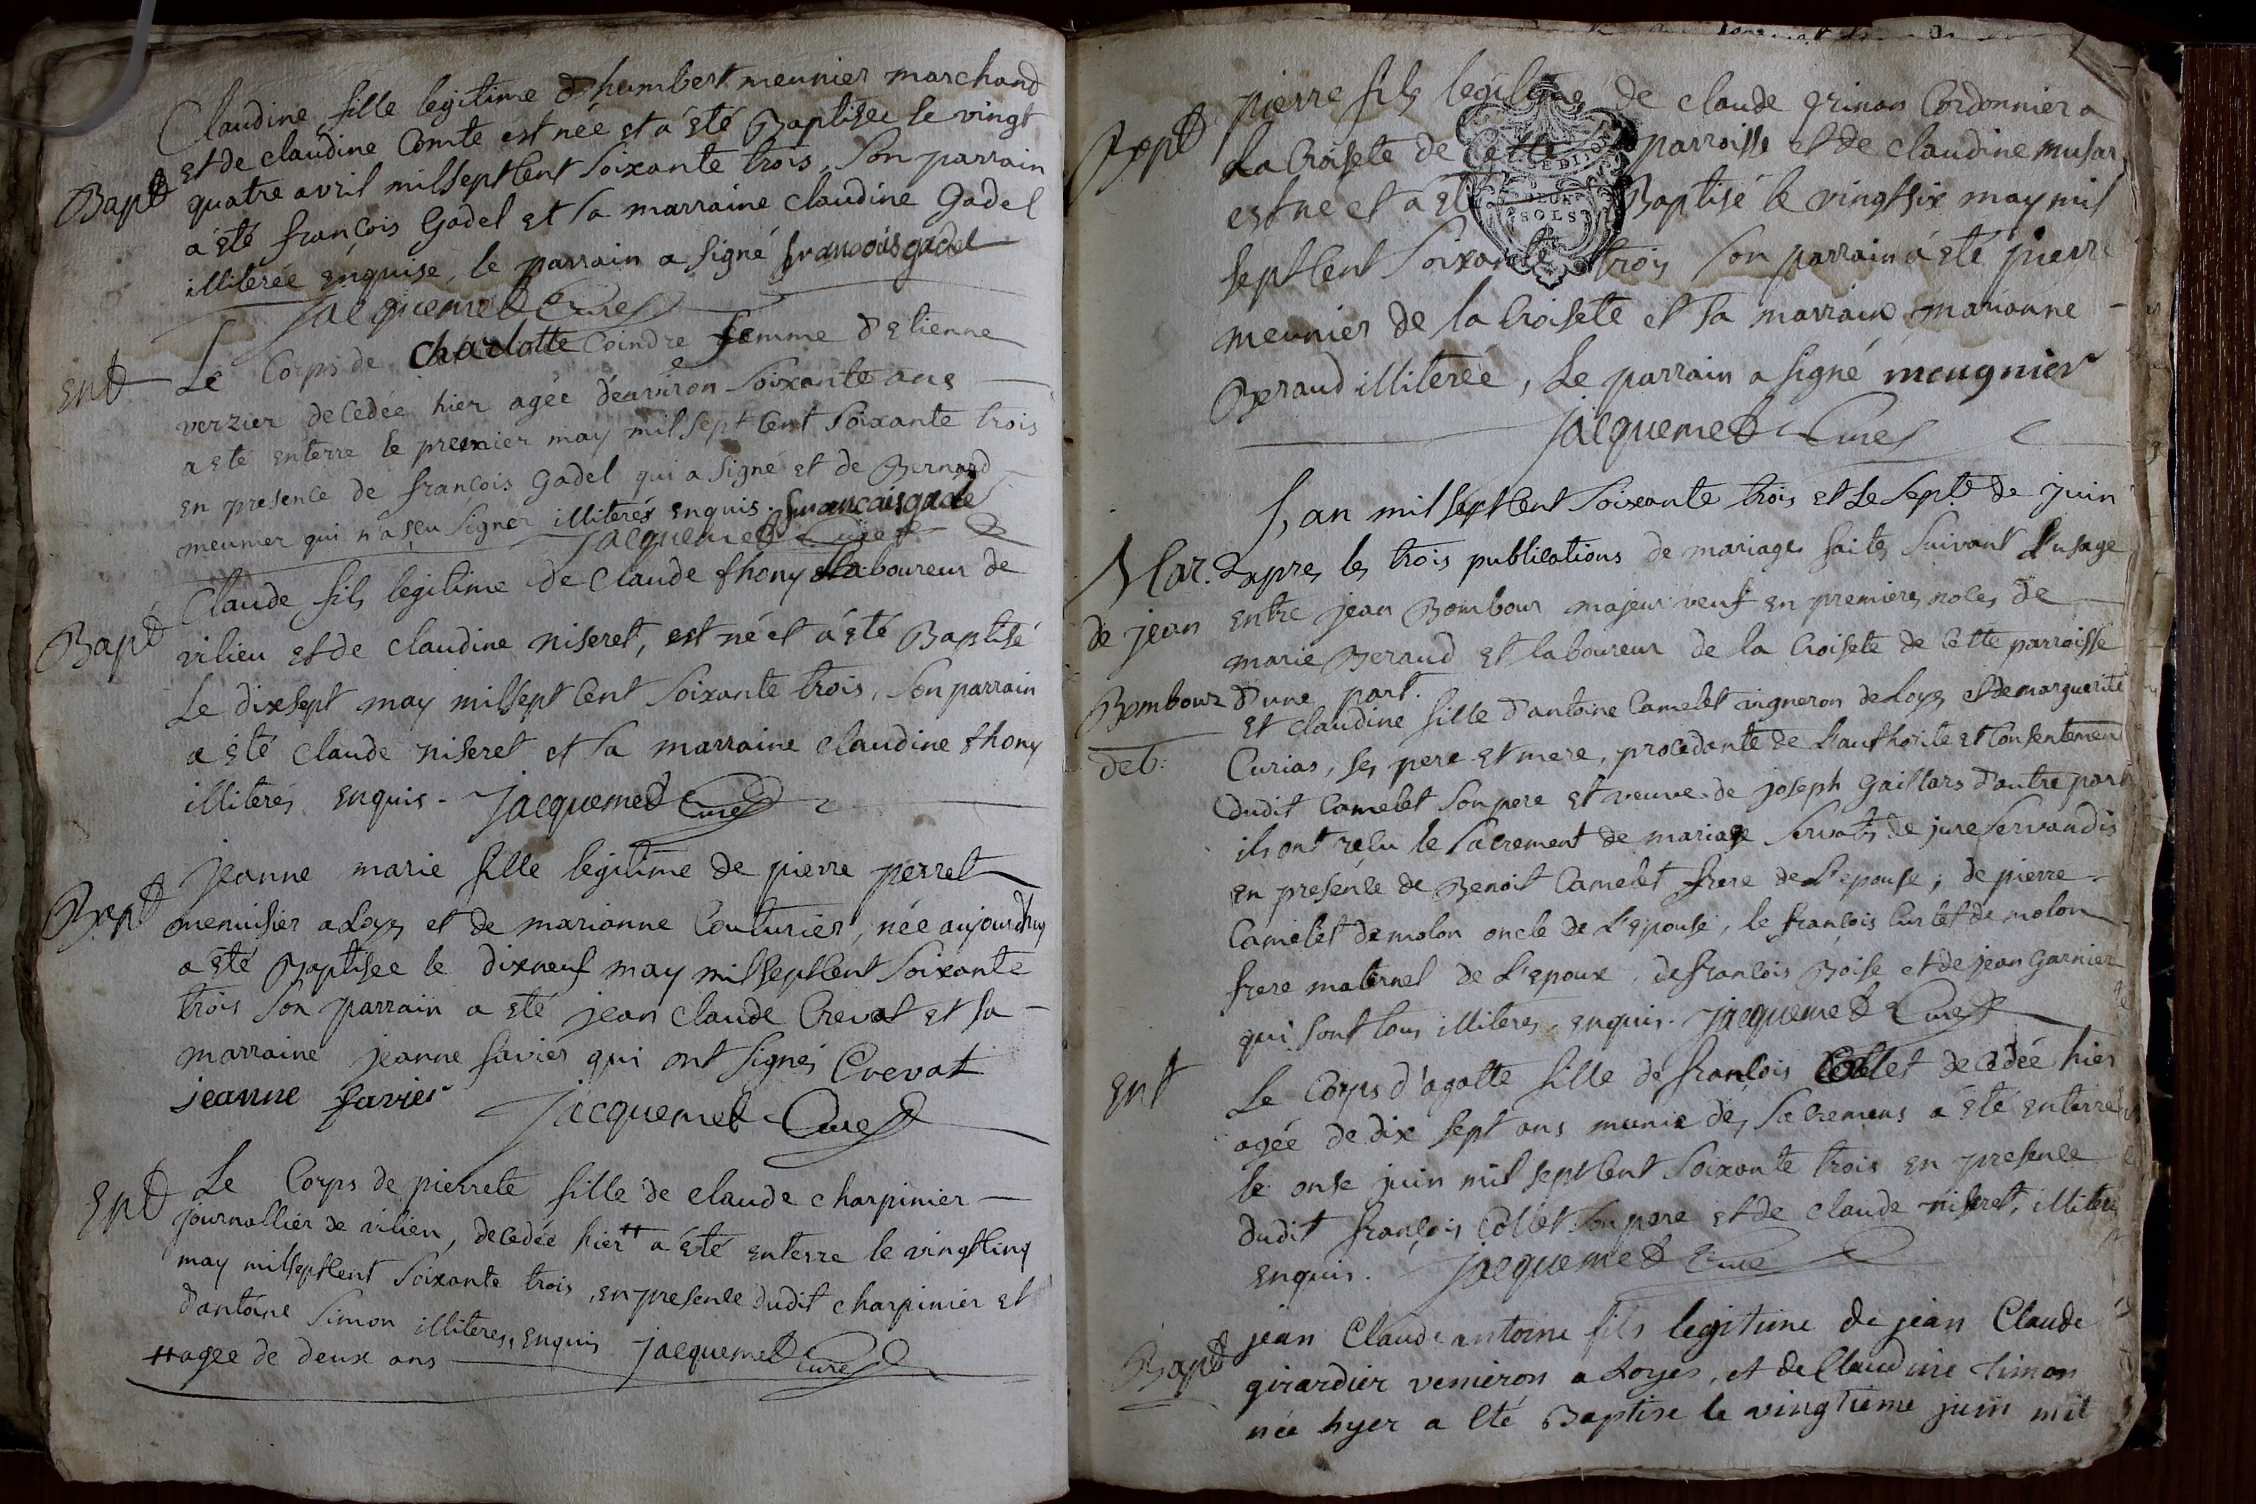 Claudine fille legitime d'humbert meunier marchand
et de claudine Comte est née et a été Baptisée le vingt
Bapt quatre avril mil sept Cent soixante trois, son parrain
a été françois Gadel et sa marraine claudine Gadel
illiterée enquise, le parrain a signé françois gadel
jacquemet Curé
Ent Le Corps de charlotte Coindre femme d'Etienne
verzier decedée hier agée d'environ soixante ans
a eté enterre le premier may mil sept Cent soixante trois
en presence de françois Gadel qui a signé et de Bernard
meunier qui n'a sçu signer illiterés enquis. françois gadel
jacquemet Curé
Claude fils legitime de Claude thony laboureur de
Bapt vilieu et de claudine niseret, est né et a été Baptisé
Le dixsept may mil sept Cent soixante trois, son parrain
a été claude niseret et sa marraine claudine thony
illiterés enquis. jacquemet Curé
jeanne marie fille legitime de pierre perret
Bapt menuisier a Loyes et de marianne Couturier, née aujourdhuy
a été Baptisée le dixneuf may mil sept Cent soixante
trois son parrain a eté jean claude Crevat et sa
marraine jeanne favier qui ont signés Crevat
jeanne favier jacquemet Curé
Ent Le Corps de pierrete fille de claude charpinier
journallier de vilieu, decedée hier ++ a été enterre le vingtcinq
may mil sept Cent soixante trois, en presence dudit charpinier et
d'antoine simon illiteres, enquis jacquemet Curé
++ agee de deux ans
pierre fils legitime de claude grinan Cordonnier a
Bapt La Croisete de Cette parroisse et de claudine musar
est né et a été Baptisé le vingtsix may mil
DEUX
SOLS
sept Cent soixante trois son parrain a été pierre
meunier de la Croisete et sa marraine marianne
Beraud illiterée, Le parrain a signé meugnier
jacquemet Curé
L'an mil sept Cent soixante trois et Le sept de juin
Mar. apres les trois publications de mariage faites suivant L'usage
de jean entre jean Bombour majeur veuf en premieres noces de
marie Beraud et laboureur de la Croisete de Cette parroisse
Bombour d'une part.
et claudine fille d'antoine Camelet vigneron de Loyes et de marguerite
deb: Curias, ses pere et mere, procedante de L'authorité et Consentement
dudit Camelet son pere et veuve de joseph Gaillars d'autre part
ils ont reçu le sacrement de mariage servatis de jure servandis
en presence de Benoit Camelet frere de L'epouse; de pierre
Camelet de molon oncle de L'epouse, le françois Curlet de molon
frere maternel de L'epoux, de françois Boise et de jean Garnier
qui sont tous illiteres, enquis. jacquemet Curé
Ent Le Corps d'agatte fille de françois Collet decedée hier
agée de dix sept ans munie des sacremens a été enterrée
le onse juin mil sept Cent soixante trois en presence
dudit françois Collet son pere et de claude niseret, illiteres
enquis. jacquemet Curé
jean Claude antoine fils legitime de jean Claude
Bapt girardier vigneron a Loyes, et de Claudine simon
née hyer a été Baptise le vingtieme juin mil